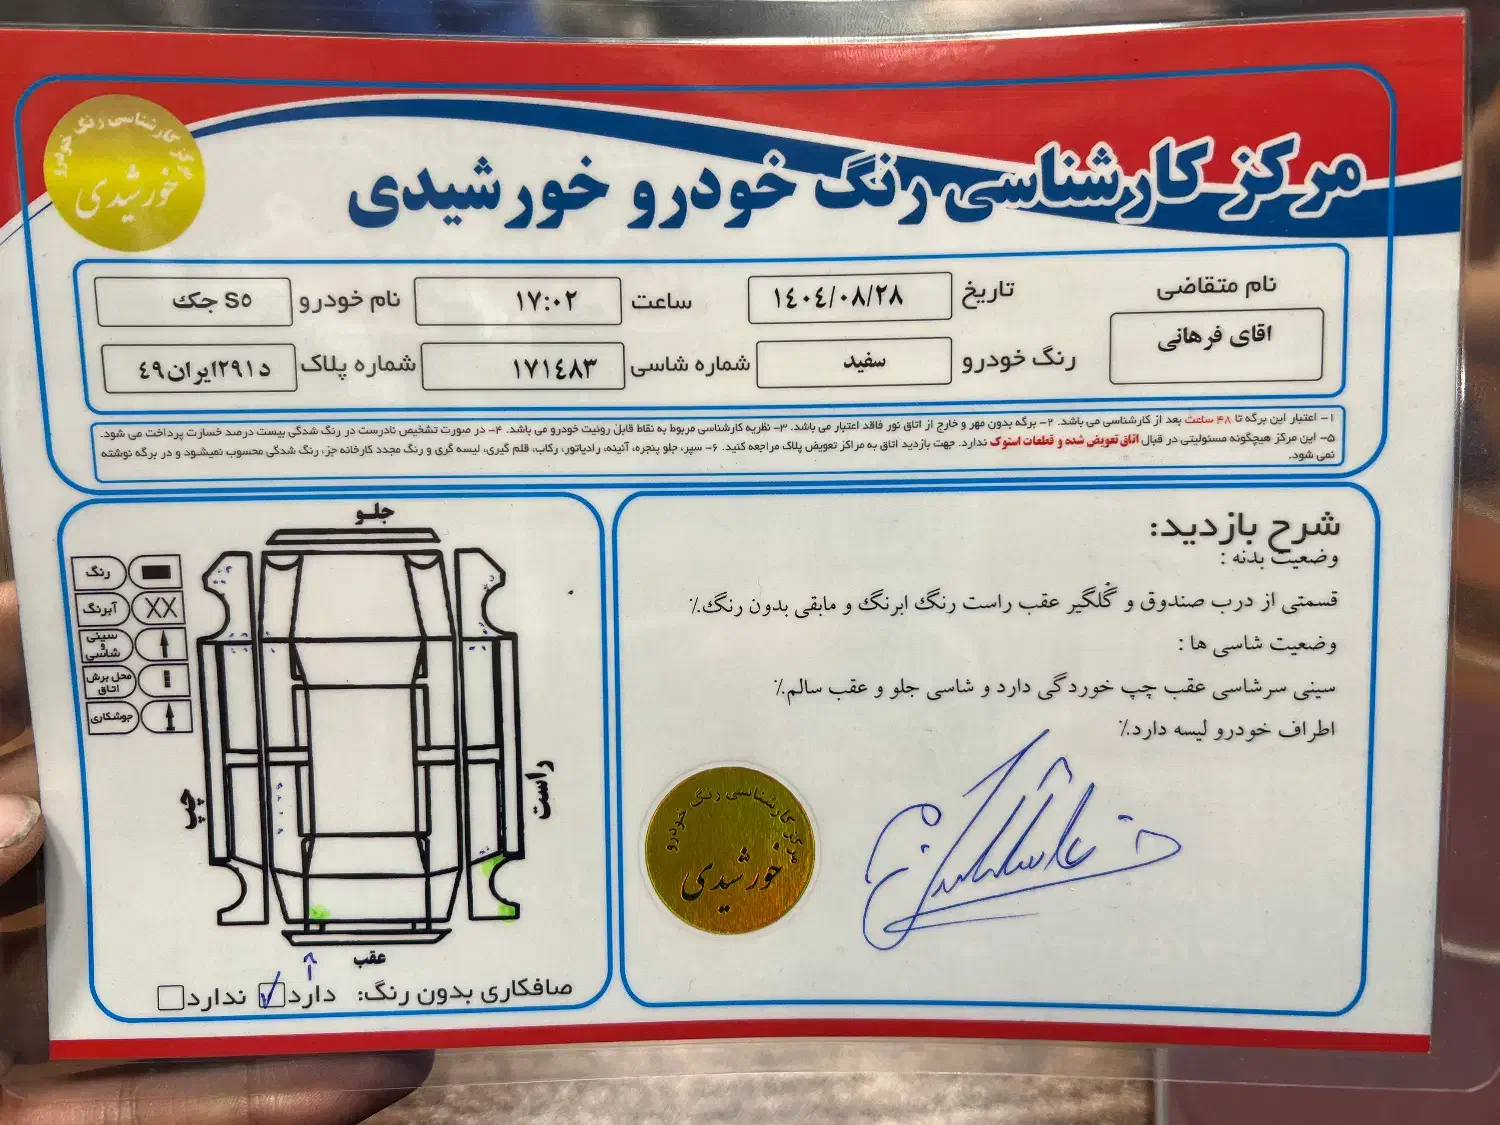 مرکز کارشناسی رنگ خودرو خورشیدی
مرکز کارشناسی رنگ خودرو
خورشیدی
نام متقاضی
اقای فرهانی
تاریخ ۱٤۰٤/۰۸/۲۸
ساعت ۱۷:۰۲
نام خودرو جک S۵
رنگ خودرو سفید
شماره شاسی ۱۷۱٤۸۳
شماره پلاک د۲۹۱ایران٤۹
۱- اعتبار این برگه تا ۴۸ ساعت بعد از کارشناسی می باشد. ۲- برگه بدون مهر و خارج از اتاق نور فاقد اعتبار می باشد. ۳- نظریه کارشناسی مربوط به نقاط قابل روئیت خودرو می باشد. ۴- در صورت تشخیص نادرست در رنگ شدگی بیست درصد خسارت پرداخت می شود.
۵- این مرکز هیچگونه مسئولیتی در قبال اتاق تعویض شده و قطعات استوک ندارد. جهت بازدید اتاق به مراکز تعویض پلاک مراجعه کنید. ۶- سپر، جلو پنجره، آئینه، رادیاتور، رکاب، قلم گیری، لیسه گری و رنگ مجدد کارخانه جزء رنگ شدگی محسوب نمیشود و در برگه نوشته
نمی شود.
شرح بازدید:
وضعیت بدنه :
قسمتی از درب صندوق و گلگیر عقب راست رنگ ابرنگ و مابقی بدون رنگ.٪
وضعیت شاسی ها :
سینی سرشاسی عقب چپ خوردگی دارد و شاسی جلو و عقب سالم.٪
اطراف خودرو لیسه دارد.٪
مرکز کارشناسی رنگ خودرو
خورشیدی
جلو
رنگ
آبرنگ
XX
سینی
و
شاسی
محل برش
اتاق
جوشکاری
چپ
راست
عقب
صافکاری بدون رنگ: دارد ندارد